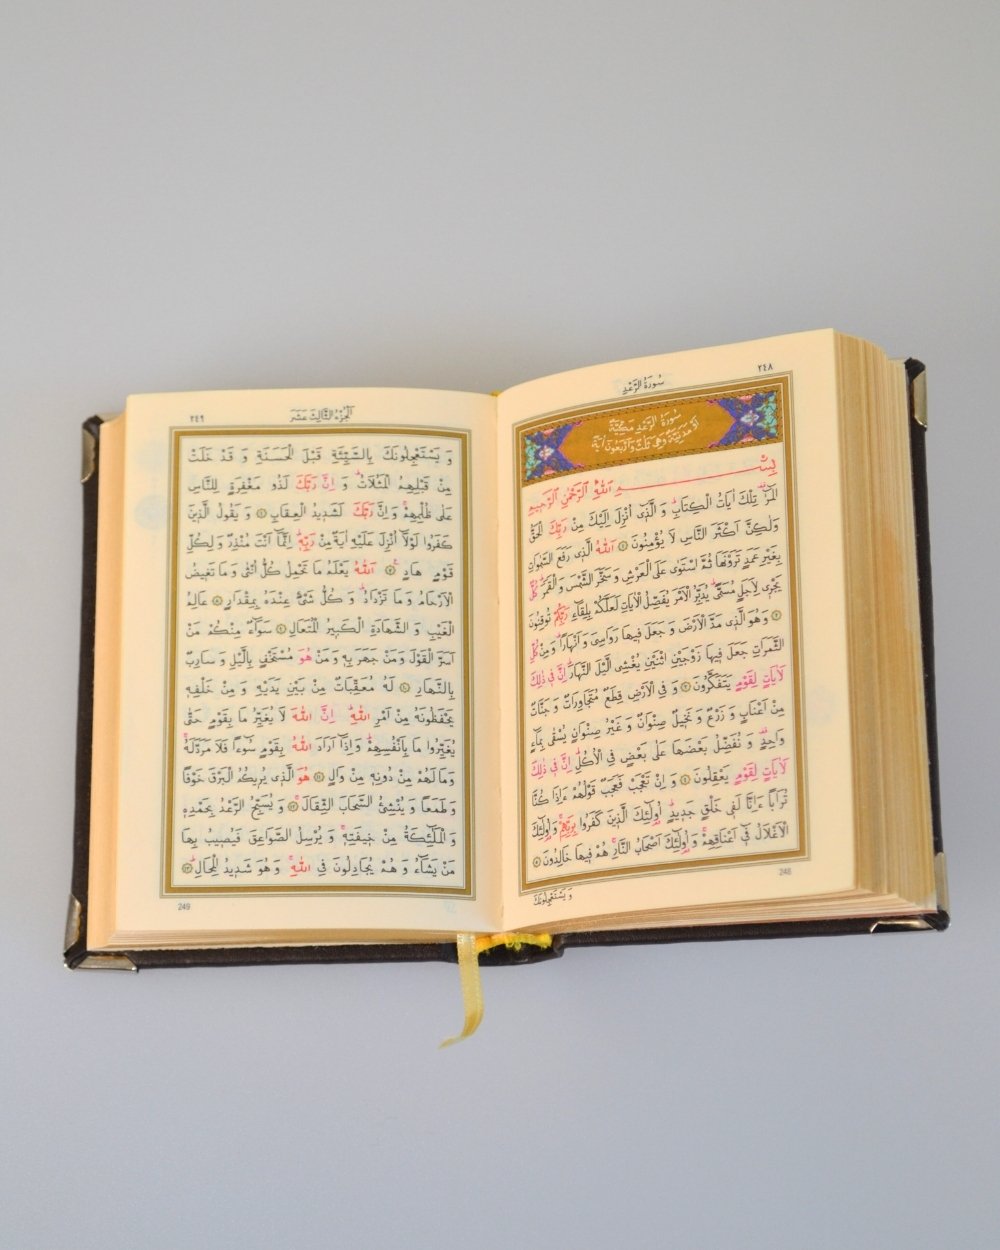 ٢٤٨
سُورَةُ الرَّعْدِ
سُورَةُ الرَّعْدِ مَكِّيَّةٌ
اَوْ مَدَنِيَّةٌ وَهِيَ ثَلٰثٌ وَاَرْبَعُونَ اٰيَةً
بِسْمِ اللّٰهِ الرَّحْمٰنِ الرَّحِيمِ
الٓمٓرٰ تِلْكَ اٰيَاتُ الْكِتَابِ وَ الَّذٖى اُنْزِلَ اِلَيْكَ مِنْ رَبِّكَ الْحَقُّ
وَلٰكِنَّ اَكْثَرَ النَّاسِ لَا يُؤْمِنُونَ ١ اَللّٰهُ الَّذٖى رَفَعَ السَّمٰوَاتِ
بِغَيْرِ عَمَدٍ تَرَوْنَهَا ثُمَّ اسْتَوٰى عَلَى الْعَرْشِ وَ سَخَّرَ الشَّمْسَ وَ الْقَمَرَ كُلٌّ
يَجْرٖى لِاَجَلٍ مُسَمًّى يُدَبِّرُ الْاَمْرَ يُفَصِّلُ الْاٰيَاتِ لَعَلَّكُمْ بِلِقَٓاءِ رَبِّكُمْ تُوقِنُونَ
٢ وَ هُوَ الَّذٖى مَدَّ الْاَرْضَ وَ جَعَلَ فٖيهَا رَوَاسِىَ وَ اَنْهَارًا وَ مِنْ كُلِّ
الثَّمَرَاتِ جَعَلَ فٖيهَا زَوْجَيْنِ اثْنَيْنِ يُغْشِى الَّيْلَ النَّهَارَ اِنَّ فٖى ذٰلِكَ
لَاٰيَاتٍ لِقَوْمٍ يَتَفَكَّرُونَ ٣ وَ فِى الْاَرْضِ قِطَعٌ مُتَجَاوِرَاتٌ وَ جَنَّاتٌ
مِنْ اَعْنَابٍ وَ زَرْعٌ وَ نَخٖيلٌ صِنْوَانٌ وَ غَيْرُ صِنْوَانٍ يُسْقٰى بِمَٓاءٍ
وَاحِدٍ وَ نُفَضِّلُ بَعْضَهَا عَلٰى بَعْضٍ فِى الْاُكُلِ اِنَّ فٖى ذٰلِكَ
لَاٰيَاتٍ لِقَوْمٍ يَعْقِلُونَ ٤ وَ اِنْ تَعْجَبْ فَعَجَبٌ قَوْلُهُمْ ءَاِذَا كُنَّا
تُرَابًا ءَاِنَّا لَفٖى خَلْقٍ جَدٖيدٍ اُولٰٓئِكَ الَّذٖينَ كَفَرُوا بِرَبِّهِمْ وَ اُولٰٓئِكَ
الْاَغْلَالُ فٖٓى اَعْنَاقِهِمْ وَ اُولٰٓئِكَ اَصْحَابُ النَّارِ هُمْ فٖيهَا خَالِدُونَ ٥
248
وَ يَسْتَعْجِلُونَكَ
٢٤٩
اَلْجُزْءُ الثَّالِثَ عَشَرَ
وَ يَسْتَعْجِلُونَكَ بِالسَّيِّئَةِ قَبْلَ الْحَسَنَةِ وَ قَدْ خَلَتْ
مِنْ قَبْلِهِمُ الْمَثُلَاتُ وَ اِنَّ رَبَّكَ لَذُو مَغْفِرَةٍ لِلنَّاسِ
عَلٰى ظُلْمِهِمْ وَ اِنَّ رَبَّكَ لَشَدٖيدُ الْعِقَابِ ٦ وَ يَقُولُ الَّذٖينَ
كَفَرُوا لَوْلَٓا اُنْزِلَ عَلَيْهِ اٰيَةٌ مِنْ رَبِّهٖ اِنَّمَٓا اَنْتَ مُنْذِرٌ وَ لِكُلِّ
قَوْمٍ هَادٍ ٧ اَللّٰهُ يَعْلَمُ مَا تَحْمِلُ كُلُّ اُنْثٰى وَ مَا تَغٖيضُ
الْاَرْحَامُ وَ مَا تَزْدَادُ وَ كُلُّ شَىْءٍ عِنْدَهُ بِمِقْدَارٍ ٨ عَالِمُ
الْغَيْبِ وَ الشَّهَادَةِ الْكَبٖيرُ الْمُتَعَالِ ٩ سَوَٓاءٌ مِنْكُمْ مَنْ
اَسَرَّ الْقَوْلَ وَ مَنْ جَهَرَ بِهٖ وَ مَنْ هُوَ مُسْتَخْفٍ بِالَّيْلِ وَ سَارِبٌ
بِالنَّهَارِ ١٠ لَهُ مُعَقِّبَاتٌ مِنْ بَيْنِ يَدَيْهِ وَ مِنْ خَلْفِهٖ
يَحْفَظُونَهُ مِنْ اَمْرِ اللّٰهِ اِنَّ اللّٰهَ لَا يُغَيِّرُ مَا بِقَوْمٍ حَتّٰى
يُغَيِّرُوا مَا بِاَنْفُسِهِمْ وَ اِذَٓا اَرَادَ اللّٰهُ بِقَوْمٍ سُٓوءًا فَلَا مَرَدَّ لَهُ
وَ مَا لَهُمْ مِنْ دُونِهٖ مِنْ وَالٍ ١١ هُوَ الَّذٖى يُرٖيكُمُ الْبَرْقَ خَوْفًا
وَ طَمَعًا وَ يُنْشِئُ السَّحَابَ الثِّقَالَ ١٢ وَ يُسَبِّحُ الرَّعْدُ بِحَمْدِهٖ
وَ الْمَلٰٓئِكَةُ مِنْ خٖيفَتِهٖ وَ يُرْسِلُ الصَّوَاعِقَ فَيُصٖيبُ بِهَا
مَنْ يَشَٓاءُ وَ هُمْ يُجَادِلُونَ فِى اللّٰهِ وَ هُوَ شَدٖيدُ الْمِحَالِ ١٣
249